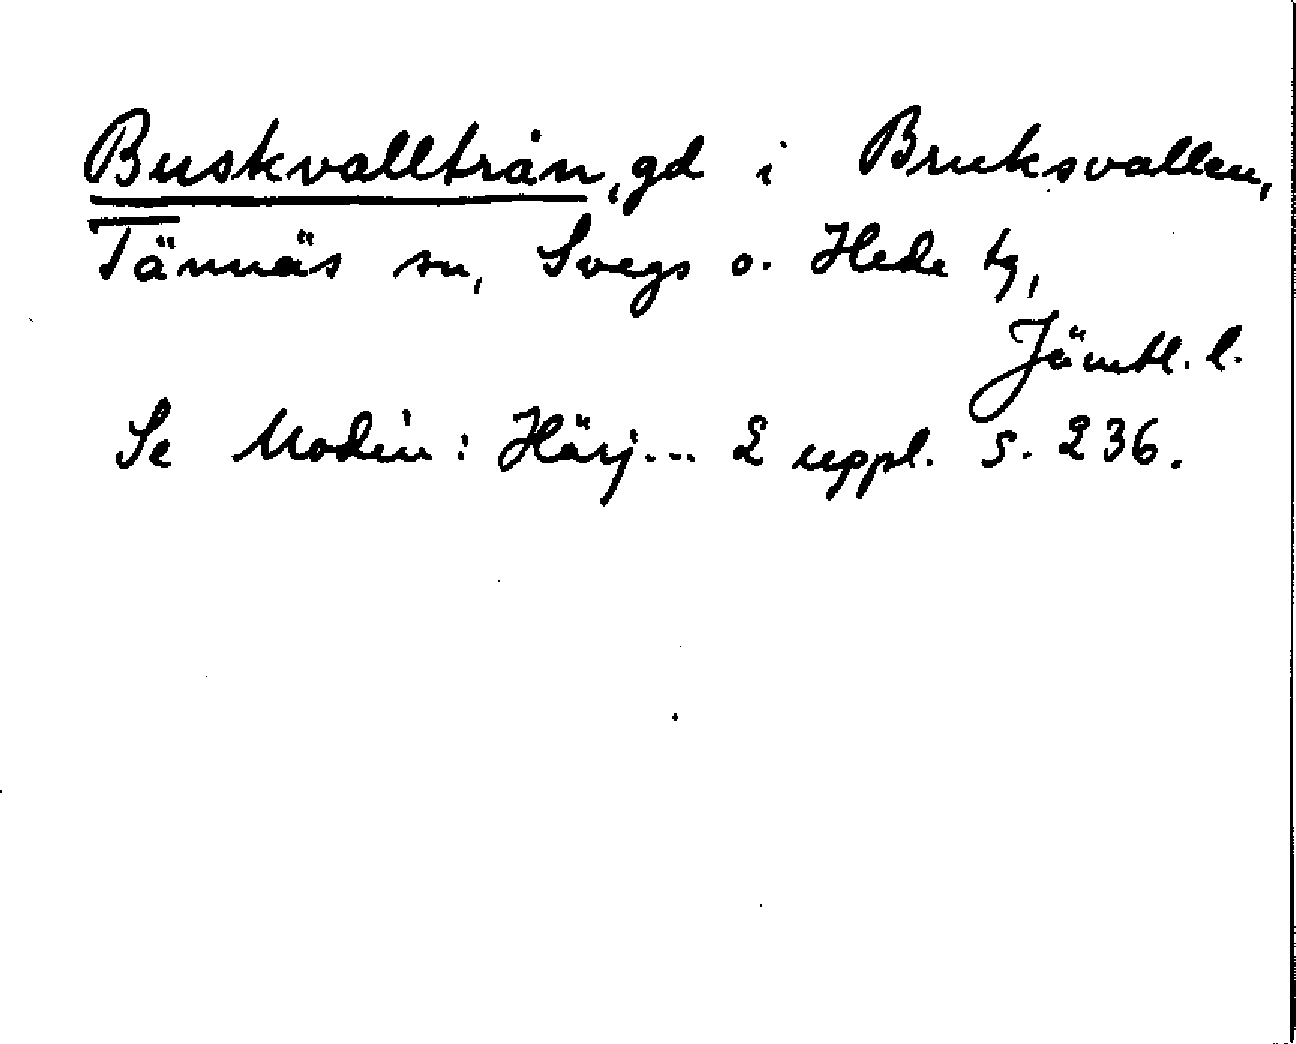 Buskvallträn, gd i Bruksvallen,
Tännäs sn, Svegs o. Hede tg,
Jämtl. l.
Se Modin: Härj... 2 uppl. s. 236.